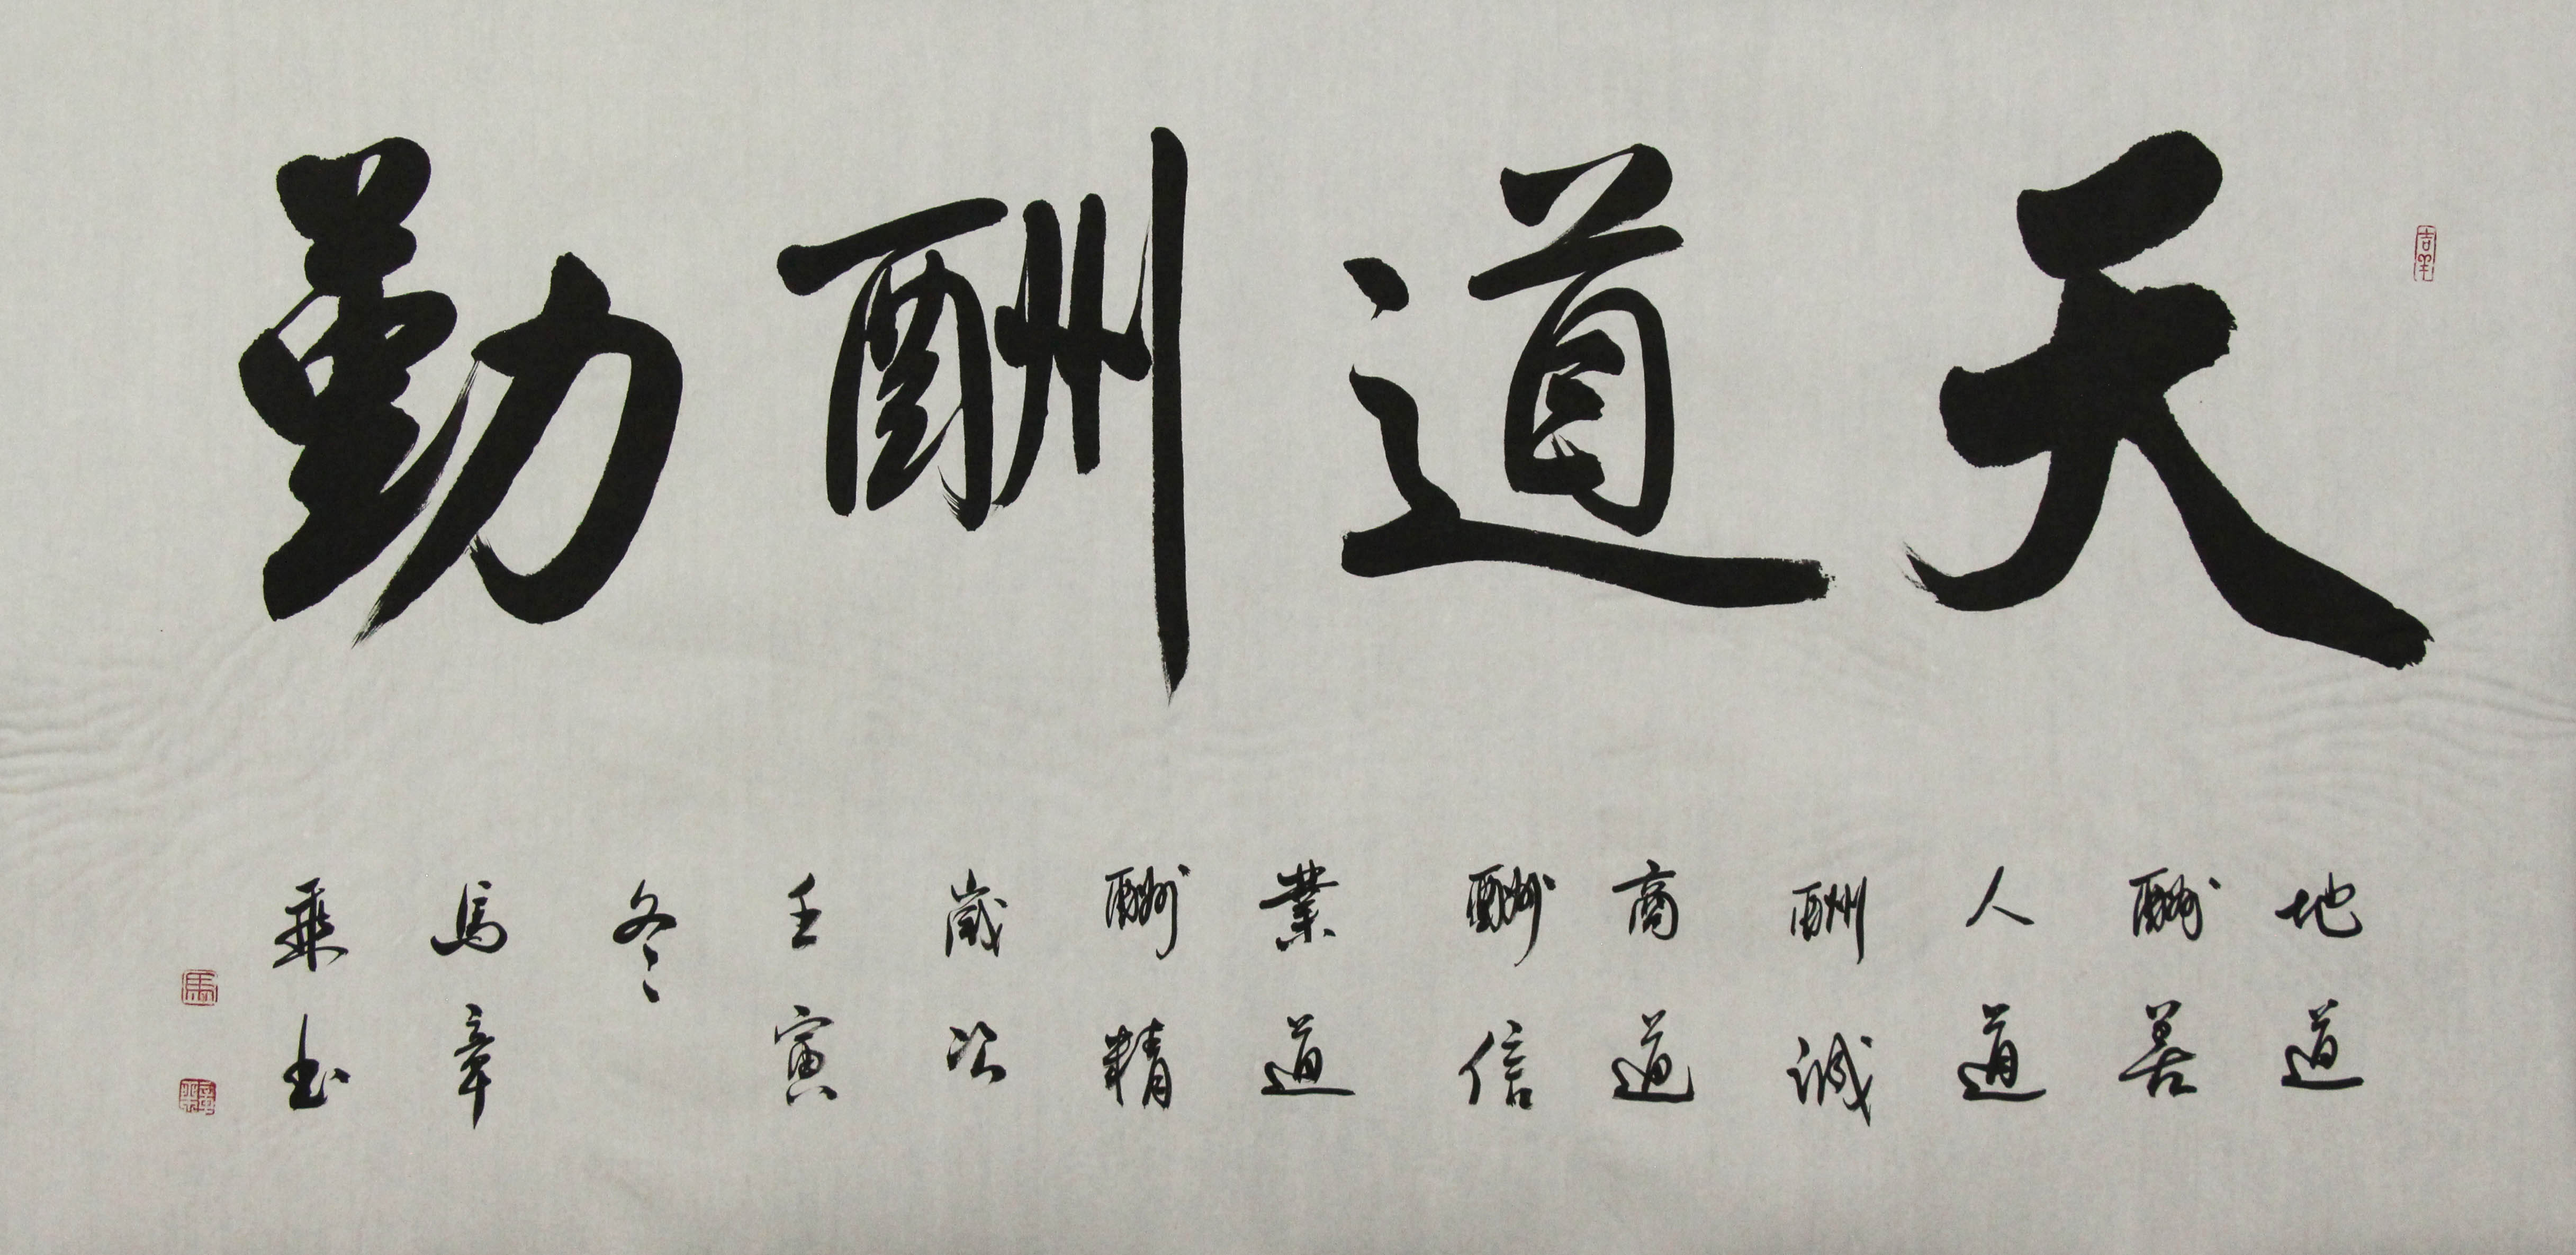 吉羊
天道酬勤
地道
酬善
人道
酬誠
商道
酬信
業道
酬精
歲次
壬寅
冬
馬章
乘書
馬